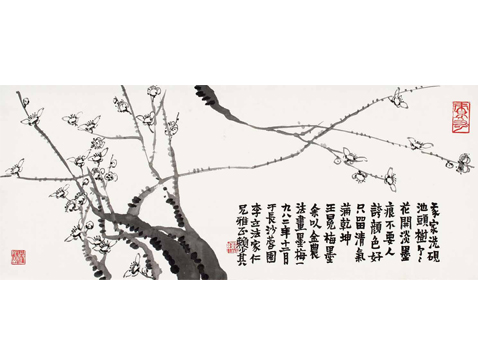 家洗硯
池頭樹个々
花開淡墨
痕不要人
誇顏色好
只留清氣
滿乾坤
王冕梅墨
余以金農
法畫墨梅一
九八二年十二月
于長沙蓉園
李立法家仁
兄雅正賴少其